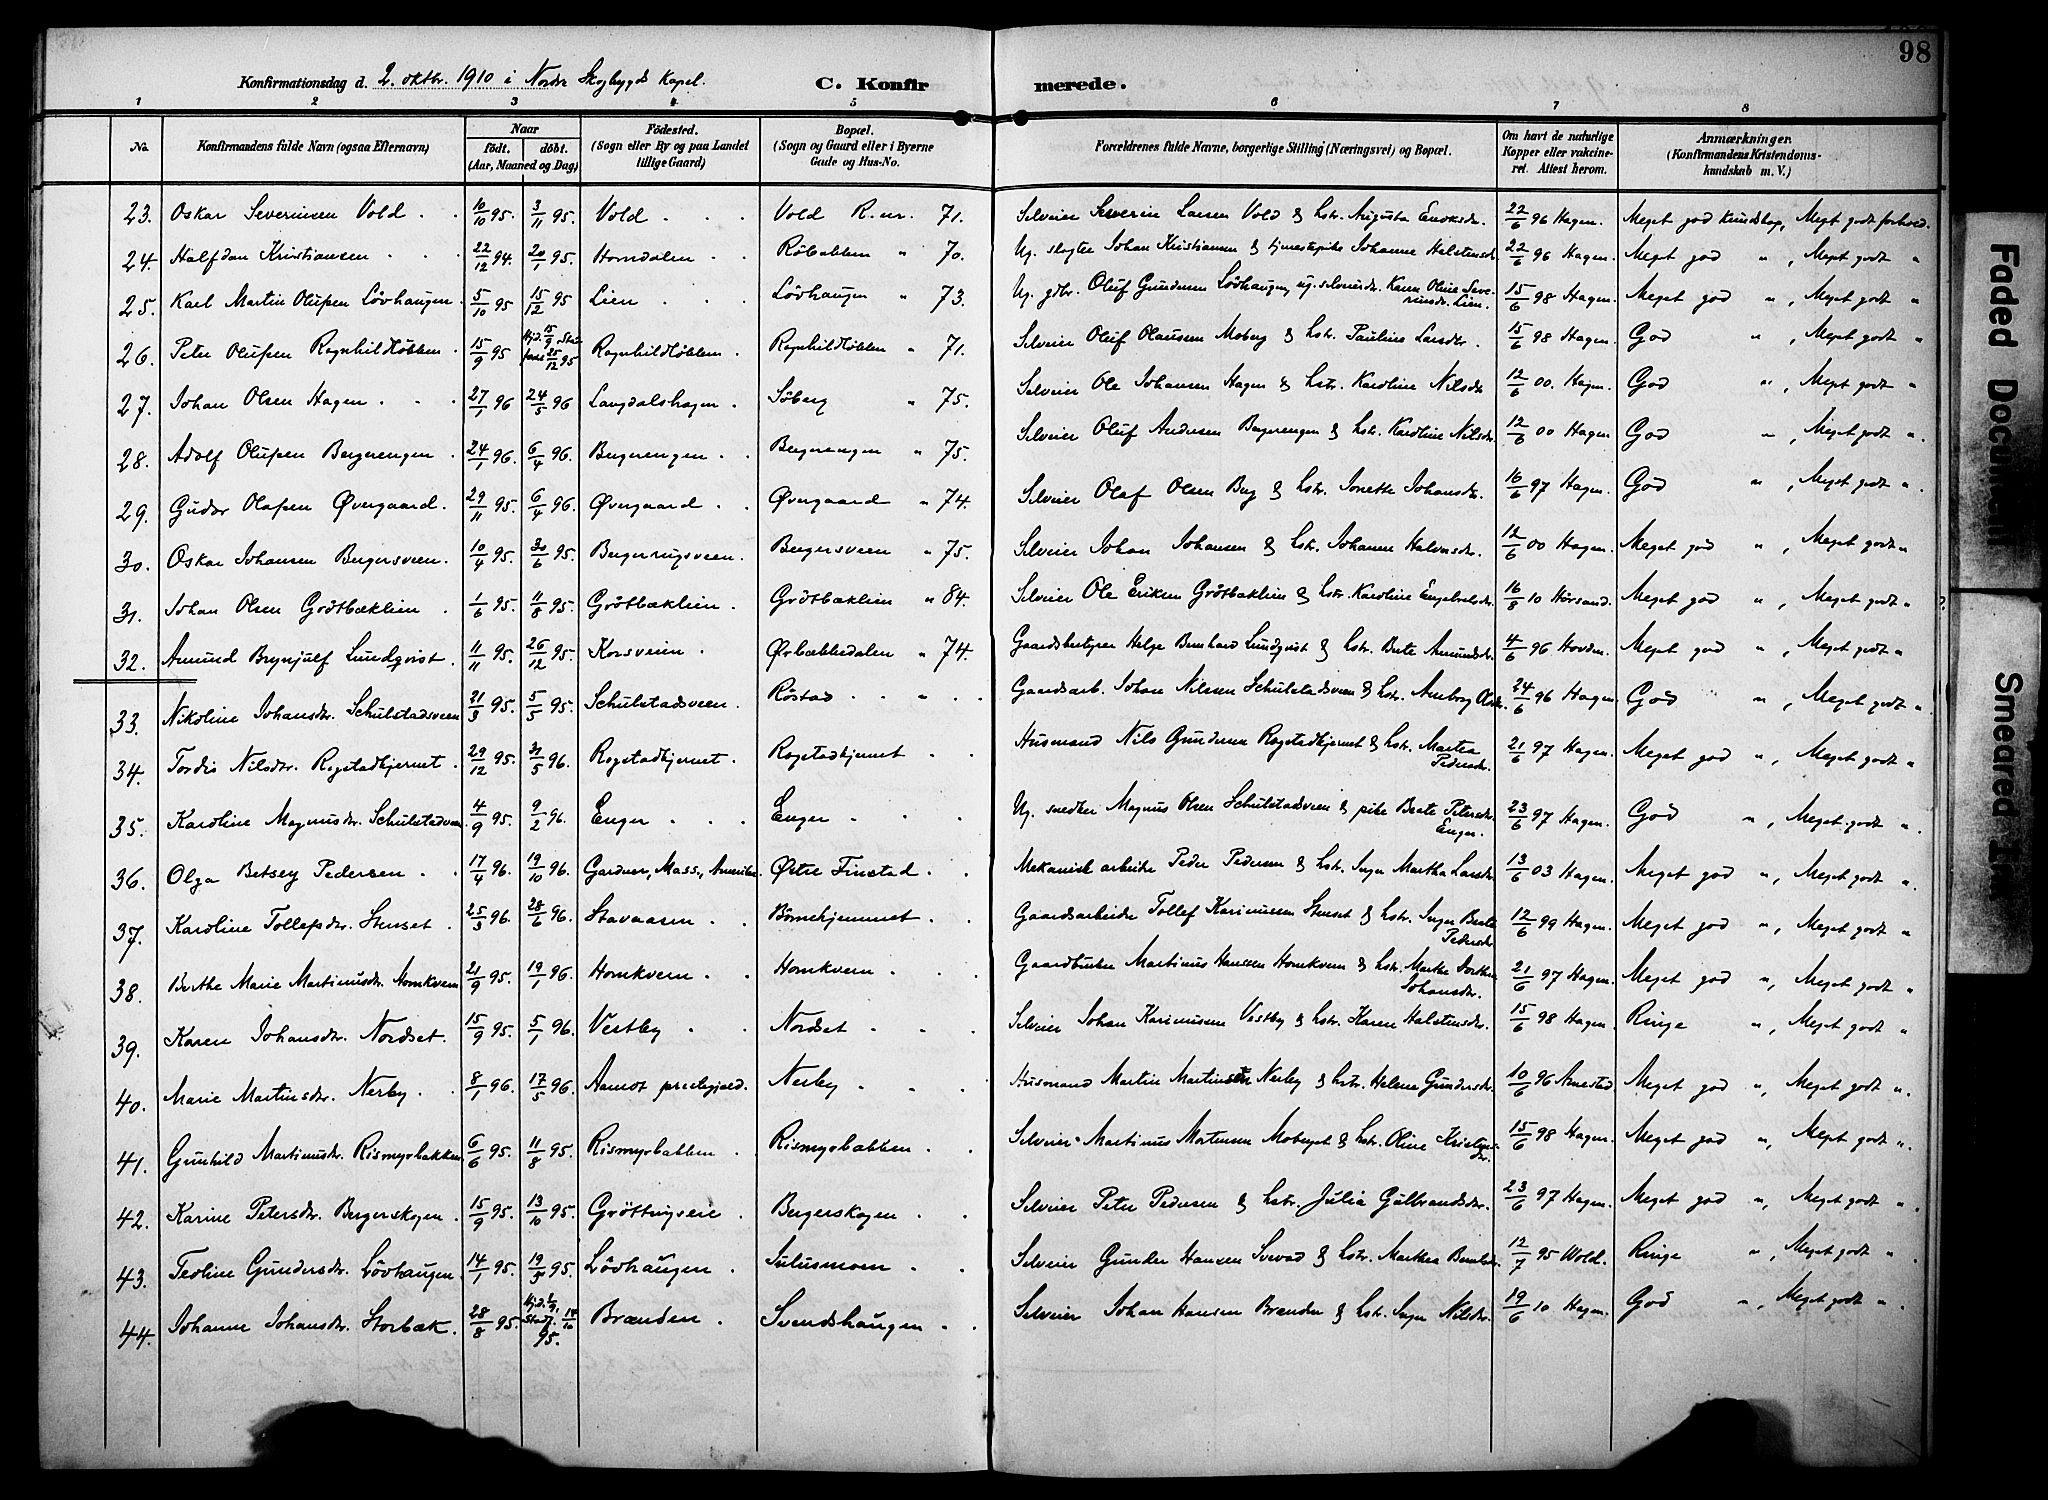 98
Konfirmationsdag d. 2. oktbr. 1910 i Nordre Skogbygds Kapel.
C. Konfirmerede.
1 2 3 4 5 6 7 8
No.
Konfirmandens fulde Navn (ogsaa Efternavn)
Naar
födt. döbt.
(Aar, Maaned og Dag)
Födested.
(Sogn eller By og paa Landet
tillige Gaard)
Bopæl.
(Sogn og Gaard eller i Byerne
Gade og Hus-No.
Forældrenes fulde Navne, borgerlige Stilling (Næringsvei) og Bopæl.
Om havt de naturlige
Kopper eller vakcine-
ret. Attest herom.
Anmærkninger.
(Konfirmandens Kristendoms-
kundskab m. V.)
23. Oskar Severinsen Vold 10/10 95. 3/11 95. Vold Vold R.nr. 71. Selveier Severin Larsen Vold & hstr. Augusta Enoksdr. 22/6 96 Hagen. Meget god kundskap, Meget godt forhold.
24. Halfdan Kristiansen 22/12 94. 20/1 95. Homdalen Röbakken " 70. Ug. slagter Johan Kristiansen & tjenestepike Johanne Halstensd. 22/6 96 Hagen. Meget god ", Meget godt "
25. Karl Martin Olufsen Lövhaugen 5/10 95 15/12 95 Lien Lövhaugen " 73. Ug. gbr. Oluf Gundersen Lövhaugen, ug. selveierdr. Karen Oline Seve-
rinsdr. Lien. 15/6 98 Hagen. Meget god ", Meget godt "
26. Peter Olufsen Ragnhildløkken 15/9 95 Hjd. 15/9, Stad-
fæst 25/12 95 Ragnhildløkken Ragnhildløkken " 71. Selveier Oluf Olaussen Moberg & hstr. Pauline Larsdr. 15/6 98 Hagen. God ", Meget godt "
27. Johan Olsen Hagen 27/1 96 24/5 96 Langdalshagen Söberg " 75. Selveier Ole Johansen Hagen & hstr. Karoline Nilsdr 12/6 00. Hagen. God ", Meget godt "
28. Adolf Olufsen Bergerengen 24/1 96. 6/4 96. Bergerengen Bergerengen " 75. Selveier Oluf Andersen Bergerengen & hstr. Karoline Nilsdr. 12/6 00 Hagen God ", Meget godt "
29. Gudbr Olafsen Øvergaard 29/11 95. 6/4 96. Øvergaard Øvergaard " 74. Selveier Olaf Olsen Berg & hstr. Jonette Johansdr. 16/6 97 Hagen. God ", Meget godt "
30. Oskar Johansen Bergersveen 10/4 95. 30/6 95. Bergerrugsveen Bergersveen " 75. Selveier Johan Johansen & hstr. Johanne Halvorsdr. 12/6 00 Hagen. Meget god ", Meget godt "
31. Johan Olsen Grötbæklien 1/6 95. 11/8 95. Grötbæklien Grötbæklien " 84. Selveier Ole Eriksen Grötbæklien & hstr. Karoline Engebretsdr. 16/8 10 Hörsand. Meget god ", Meget godt "
32. Amund Brynjulf Lundqvist 11/11 95. 26/12 95. Korsveien Ørbækkedalen " 74. Gaardsbestyrer Helge Bernhard Lundqvist & hstr. Berte Amundsdr. 4/6 96 Hovden. Meget god ", Meget godt "
33. Nikoline Johansdr. Schulstadsveen 21/3 95. 5/5 95. Schulstadsveen Röstad " Gaardsarb. Johan Nilsen Schulstadsveen & hstr. Anborg Olsdr. 24/6 96 Hagen. God ", Meget godt "
34. Tordis Nilsdr. Rogstadkjernet 29/12 95. 31/5 96. Rogstadkjernet Rogstadkjernet Husmand Nils Gundersen Rogstadkjernet & hstr. Martea
Pedersdr. 21/6 97 Hagen. Meget god ", Meget godt "
35. Karoline Magnusdr. Schulstadsveen 4/9 95. 9/2 96. Enger Enger Ug. snedker Magnus Olsen Schulstadsveen & pike Beate Petersdr.
Enger. 23/6 97 Hagen. God ", Meget godt "
36. Olga Betsey Pedersen 17/4 96. 19/10 96. Gardner, Mass., Amerika. Østre Finstad Mekanisk arbeider Peder Pedersen & hstr. Inger Martha Larsdr 13/6 03 Hagen. Meget god ", Meget godt "
37. Karoline Tollefsdr. Stenset 25/3 96. 28/6 96. Stavaasen Börnehjemmet Gaardsarbeider Tollef Karinussen Stenset & hstr. Inger Berte
Pedersdr 12/6 99 Hagen. Meget god ", Meget godt "
38. Berthe Marie Martinusdr. Hornkvern 21/9 95. 19/1 96. Hornkvern Hornkvern Gaardbruker Martinus Hanssen Hornkvern & hstr. Marthe Dorthea
Johansdr. 21/6 97 Hagen. Meget god ", Meget godt "
39. Karen Johansdr. Nordset. 15/9 95. 5/1 96. Vestby Nordset Selveier Johan Karinussen Vestby & hstr. Karen Halstensdr. 15/6 98 Hagen. Ringe ", Meget godt "
40. Marie Martinsdr. Nerby 8/1 96. 17/5 96. Aamot prestegjeld. Nerby Husmand Martin Martinsen Nerby & hstr. Helene Gundersdr. 10/6 96 Arnestad Meget god ", Meget godt "
41. Gunhild Martinusdr. Rismyrbakken 6/6 95. 11/8 95. Rismyrbakken Rismyrbakken Selveier Martinus Mortensen Moberget & hstr. Oline Kristians-
dr. 15/6 98 Hagen. Meget god ", Meget godt "
42. Karine Petersdr. Bergerskogen 15/9 95. 13/10 95. Gröttingseie Bergerskogen Selveier Peter Pedersen & hstr. Julia Gulbrandsdr. 23/6 97 Hagen. Meget god ", Meget godt "
43. Teoline Gundersdr. Lövhaugen 14/1 95. 19/5 95. Lövhaugen Sulusmoen Selveier Gunder Hansen Svevad & hstr. Marthea Berntsdr 12/7 95 Wold. Ringe ", Meget godt "
44. Johanne Johansdr. Storbæk 28/8 95. Hjd. 1/9, Stadf. 14/10 95. Brænden Svendshaugen Selveier Johan Hansen Brænden & hstr. Inger Nilsdr. 19/6 10 Hagen. God ", Meget godt "
Faded Document
Smeared Ink